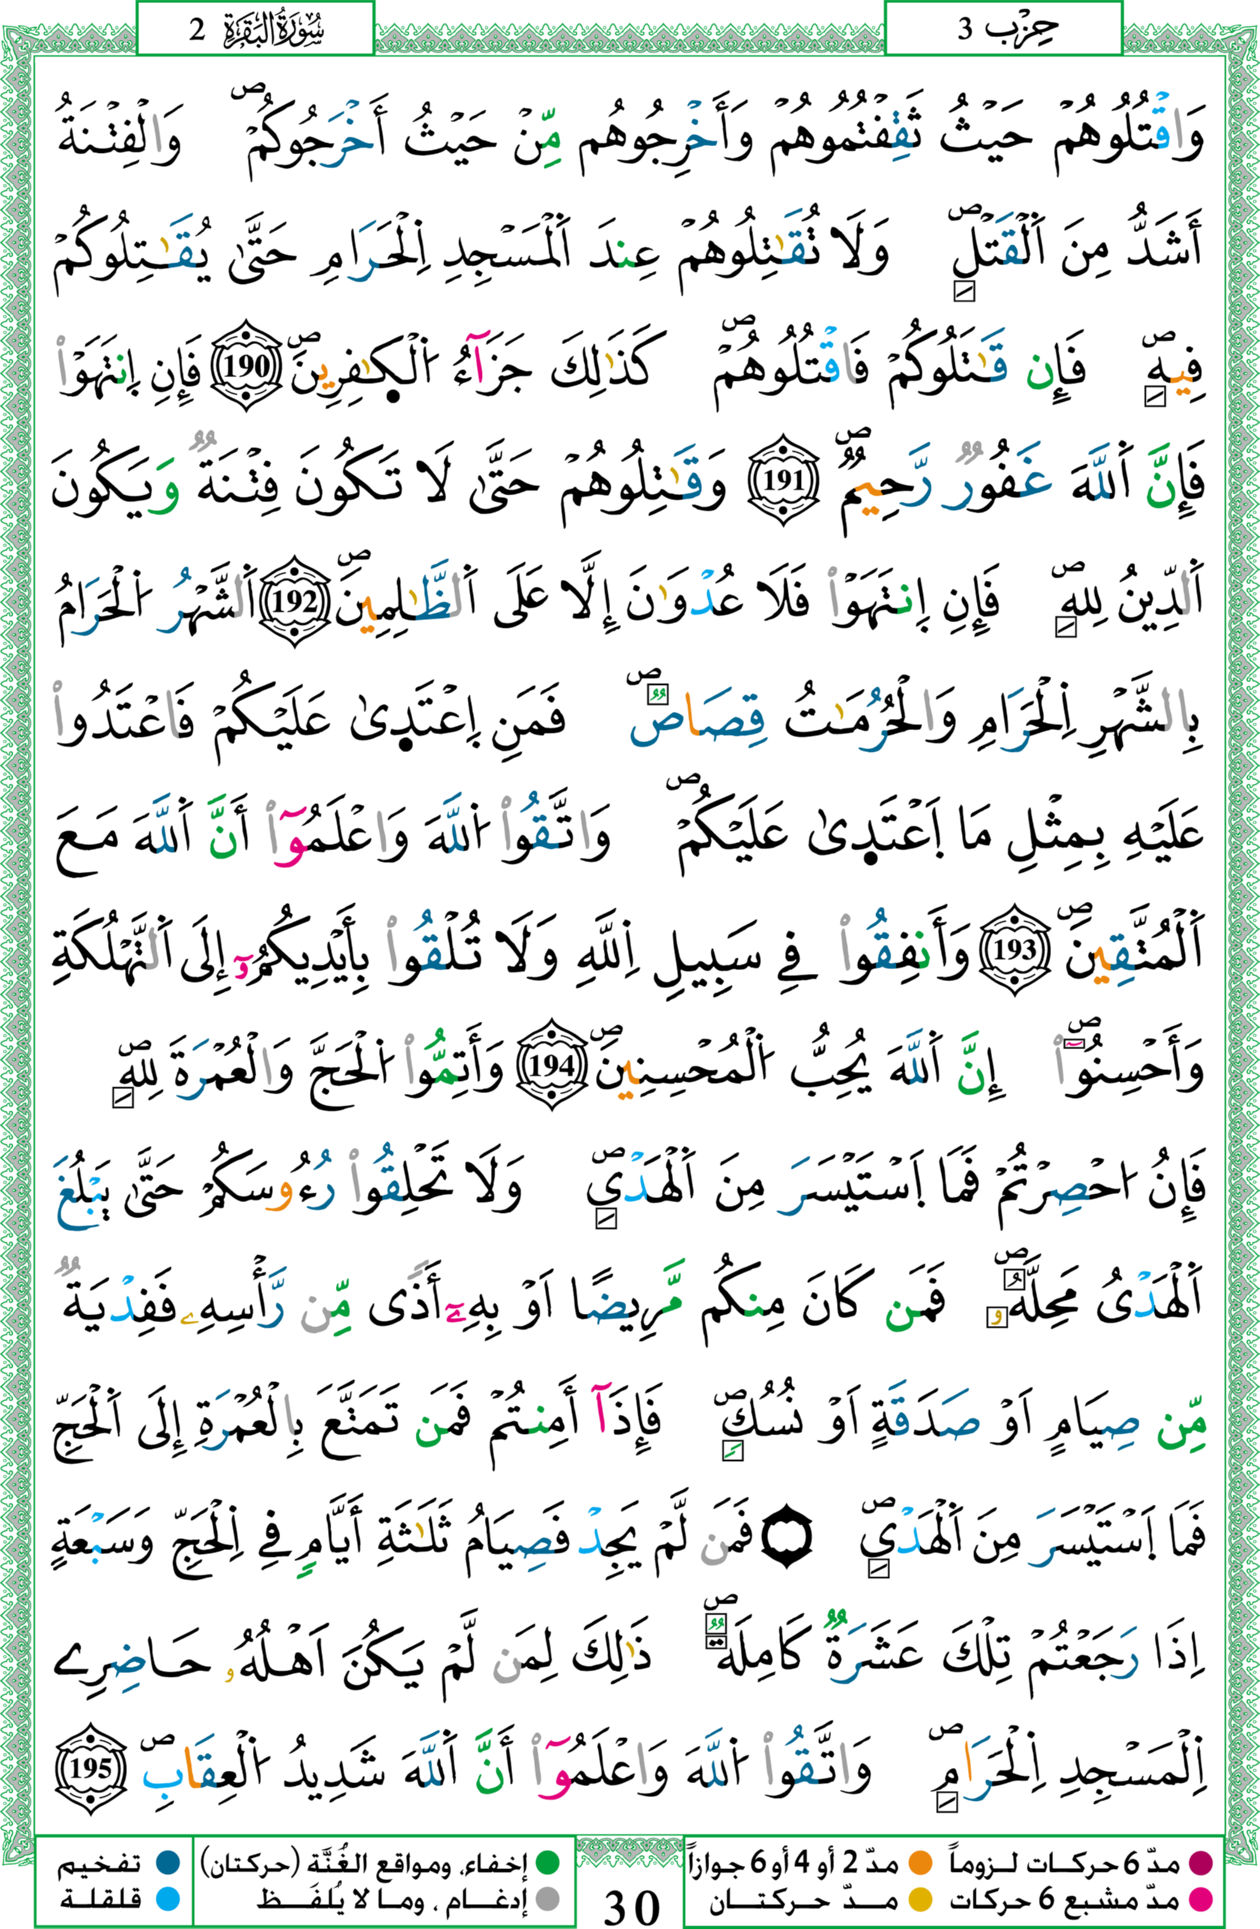 سُورَةُ البَقَرَةِ 2
حِزْب 3
وَاقْتُلُوهُمْ حَيْثُ ثَقِفْتُمُوهُمْ وَأَخْرِجُوهُم مِّنْ حَيْثُ أَخْرَجُوكُمْ ۖ وَالْفِتْنَةُ
أَشَدُّ مِنَ اَلْقَتْلِ ۖ وَلَا تُقَٰتِلُوهُمْ عِندَ اَلْمَسْجِدِ اِلْحَرَامِ حَتَّىٰ يُقَٰتِلُوكُمْ
فِيهِ ۖ فَإِن قَٰتَلُوكُمْ فَاقْتُلُوهُمْ ۖ كَذَٰلِكَ جَزَآءُ اُلْكٰفِرِينَ ۖ 190 فَإِنِ اِنتَهَوْاْ
فَإِنَّ اَللَّهَ غَفُورٌ رَّحِيمٌ ۖ 191 وَقَٰتِلُوهُمْ حَتَّىٰ لَا تَكُونَ فِتْنَةٌ وَيَكُونَ
اَلدِّينُ لِلهِ ۖ فَإِنِ اِنتَهَوْاْ فَلَا عُدْوَٰنَ إِلَّا عَلَى اَلظَّٰلِمِينَ ۖ 192 اَلشَّهْرُ اُلْحَرَامُ
بِالشَّهْرِ اِلْحَرَامِ وَالْحُرُمَٰتُ قِصَاصٌ ۖ فَمَنِ اِعْتَدِىٰ عَلَيْكُمْ فَاعْتَدُواْ
عَلَيْهِ بِمِثْلِ مَا اَعْتَدِىٰ عَلَيْكُمْ ۖ وَاتَّقُواْ اُللَّهَ وَاعْلَمُوٓاْ أَنَّ اَللَّهَ مَعَ
اَلْمُتَّقِينَ ۖ 193 وَأَنفِقُواْ فِي سَبِيلِ اِللَّهِ وَلَا تُلْقُواْ بِأَيْدِيكُمُۥٓ إِلَى اَلتَّهْلُكَةِ
وَأَحْسِنُوٓاْ ۖ إِنَّ اَللَّهَ يُحِبُّ اُلْمُحْسِنِينَ ۖ 194 وَأَتِمُّواْ اُلْحَجَّ وَالْعُمْرَةَ لِلهِ ۖ
فَإِنُ احْصِرْتُمْ فَمَا اَسْتَيْسَرَ مِنَ اَلْهَدْيِ ۖ وَلَا تَحْلِقُواْ رُءُوسَكُمْ حَتَّىٰ يَبْلُغَ
اَلْهَدْىُ مَحِلَّهُۥ ۖ فَمَن كَانَ مِنكُم مَّرِيضًا اَوْ بِهِۦٓ أَذًى مِّن رَّأْسِهِۦ فَفِدْيَةٌ
مِّن صِيَامٍ اَوْ صَدَقَةٍ اَوْ نُسُكٍ ۖ فَإِذَآ أَمِنتُمْ فَمَن تَمَتَّعَ بِالْعُمْرَةِ إِلَى اَلْحَجِّ
فَمَا اَسْتَيْسَرَ مِنَ اَلْهَدْيِ ۖ فَمَن لَّمْ يَجِدْ فَصِيَامُ ثَلَٰثَةِ أَيَّامٍ فِي اِلْحَجِّ وَسَبْعَةٍ
اِذَا رَجَعْتُمْ تِلْكَ عَشَرَةٌ كَامِلَةٌ ۖ ذَٰلِكَ لِمَن لَّمْ يَكُنَ اَهْلُهُۥ حَاضِرِے
اِلْمَسْجِدِ اِلْحَرَامِ ۖ وَاتَّقُواْ اُللَّهَ وَاعْلَمُوٓاْ أَنَّ اَللَّهَ شَدِيدُ اُلْعِقَابِ ۖ 195
مدّ 6 حركات لـزوماً مدّ 2 أو 4 أو 6 جوازاً
مدّ مشبع 6 حركات مـــدّ حـركتـــان
30
إخفاء، ومواقع الغُنَّة (حركتان) تفخيم
إدغـام ، ومـا لا يُلفَـظ قلقلة